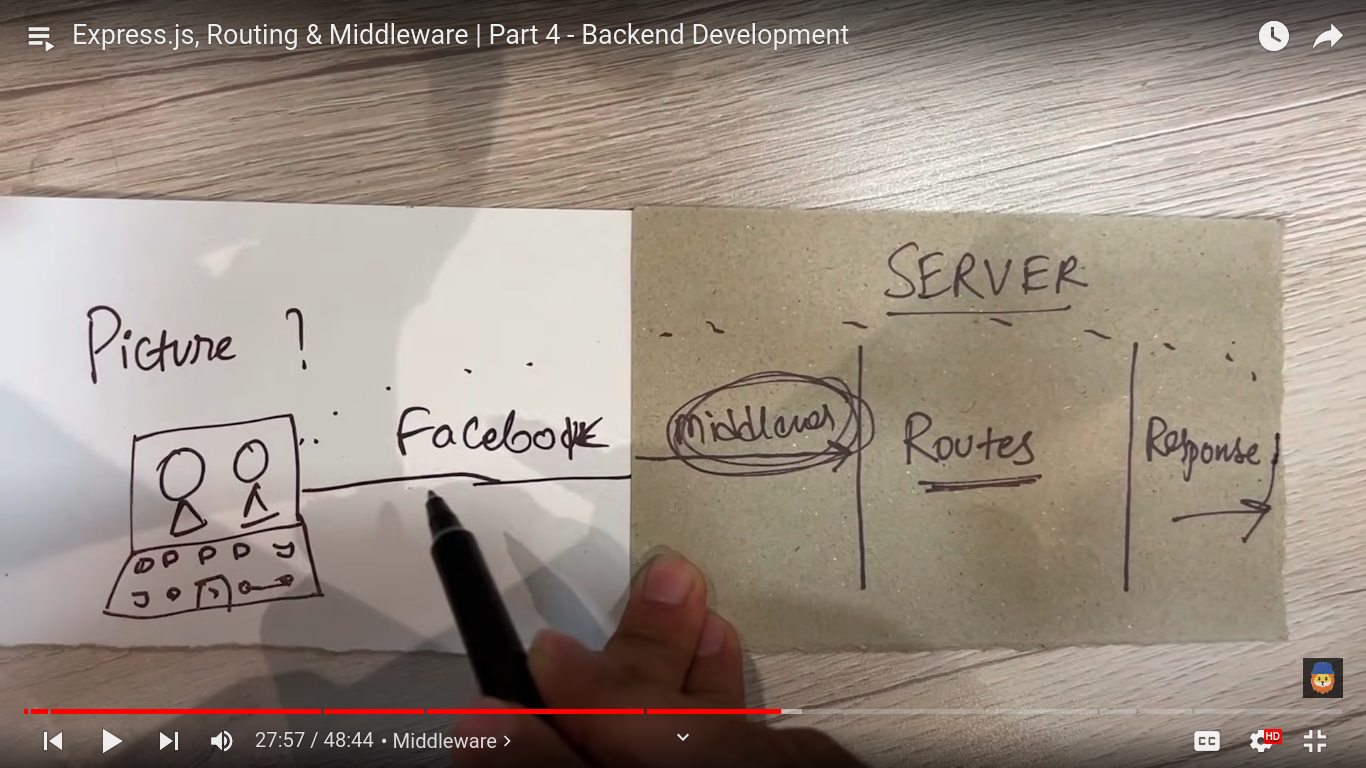 Express.js, Routing & Middleware | Part 4 - Backend Development
SERVER
Picture ?
Facebook
Routes
Response
27:57 / 48:44 • Middleware >
CC
HD